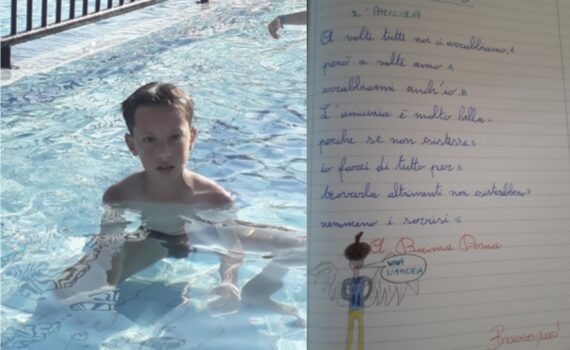 L'AMICIZIA
A volte tutti noi ci arrabbiamo,
però a volte amo
arrabbiarmi anch'io. B
L'amicizia è molto bella
perché se non esistesse
io farei di tutto per
trovarla altrimenti non esisterebbero
nemmeno i sorrisi
A Baima Poma
VIVA
L'AMICIZIA